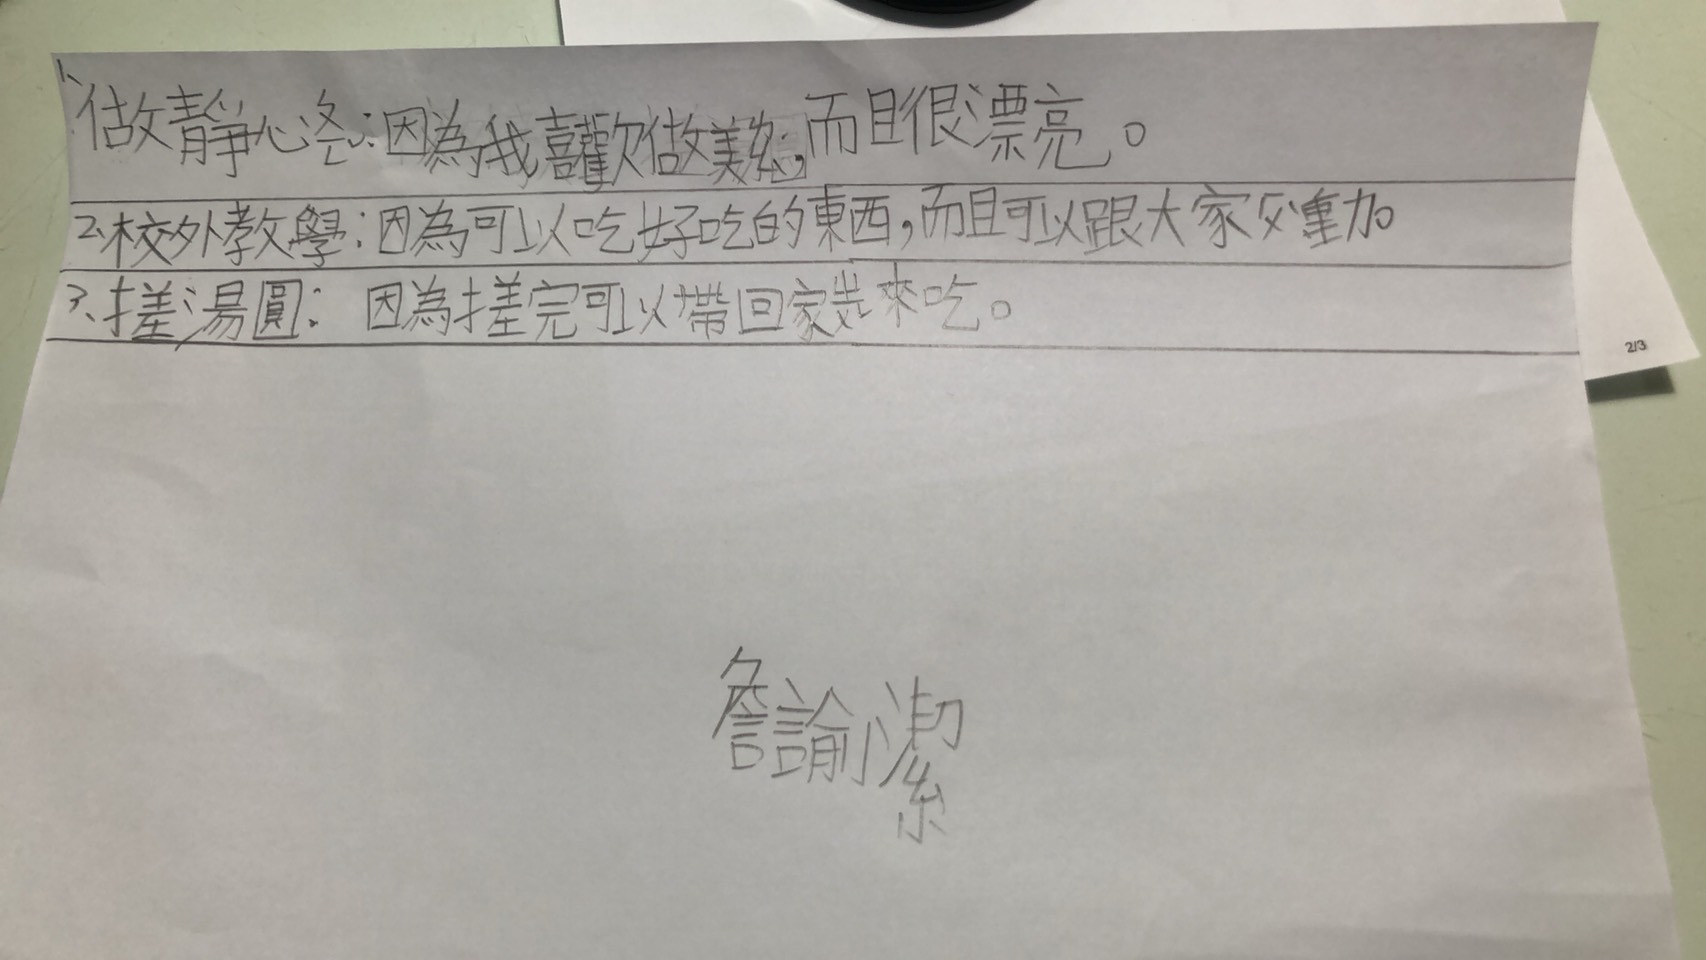 1、做靜心瓶：因為我喜歡做美勞，而且很漂亮。
2、校外教學：因為可以吃好吃的東西，而且可以跟大家互動。
3、搓湯圓：因為搓完可以帶回家煮來吃。
詹諭潔
2/3